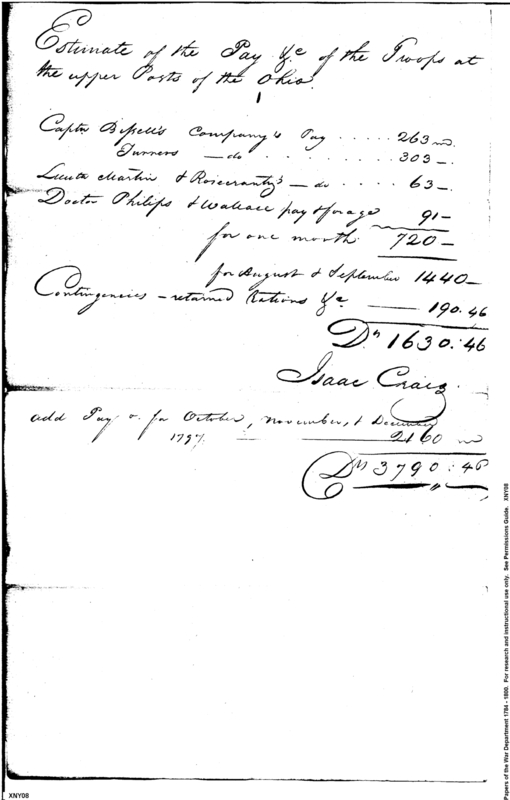 Estimate of the Pay &c of the Troops at
the upper Posts of the Ohio.
Captn Bissell's Company's Pay ..... 263
Turners — do .......... 303 —.
Lieuts Martin & Rosecrantz's — do .... 63 —.
Doctor Philips & Wallace pay & forage 91 —
for one month. 720 —
for August & September 1440 —
Contingencies — retained Rations &c —— 190.46
Drs 1630:46
Isaac Craig.
add Pay &c for October, November, & December
1797. — —— 2160
Drs 3790:46
Papers of the War Department 1784 - 1800. For research and instructional use only. See Permissions Guide. XNY08
XNY08